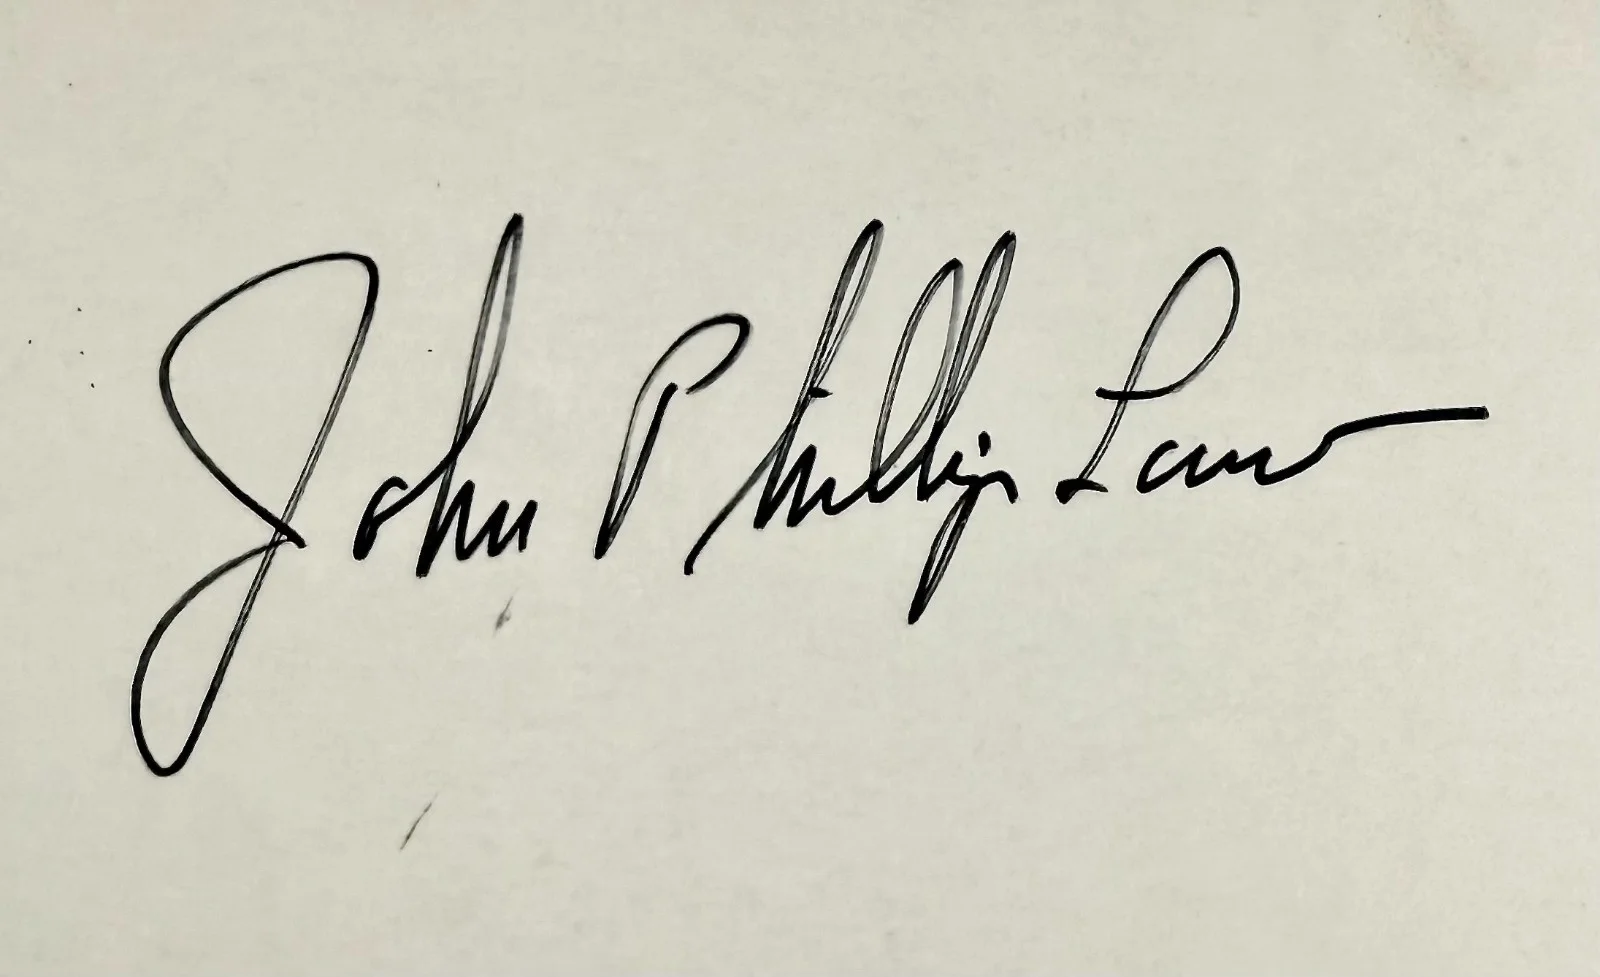 John Phillip Law